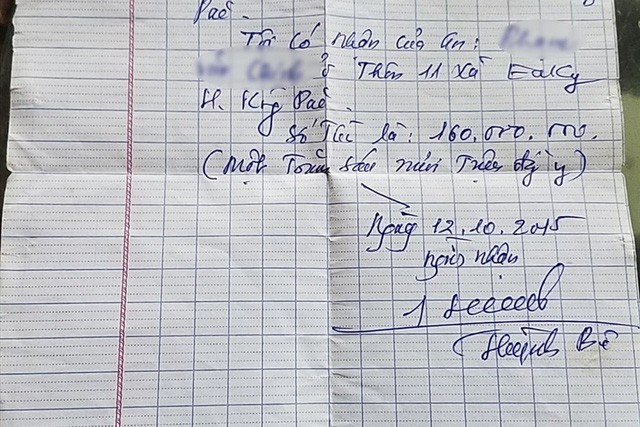 Pắc.
Tôi có nhận của ân:
ở Thôn 11 xã EaKly
H. Krông Pắc.
Số Tiền là: 160.000.000.
(Một Trăm Sáu mươi Triệu đồng y)
Ngày 12.10.2015
người nhận
Huỳnh Bê